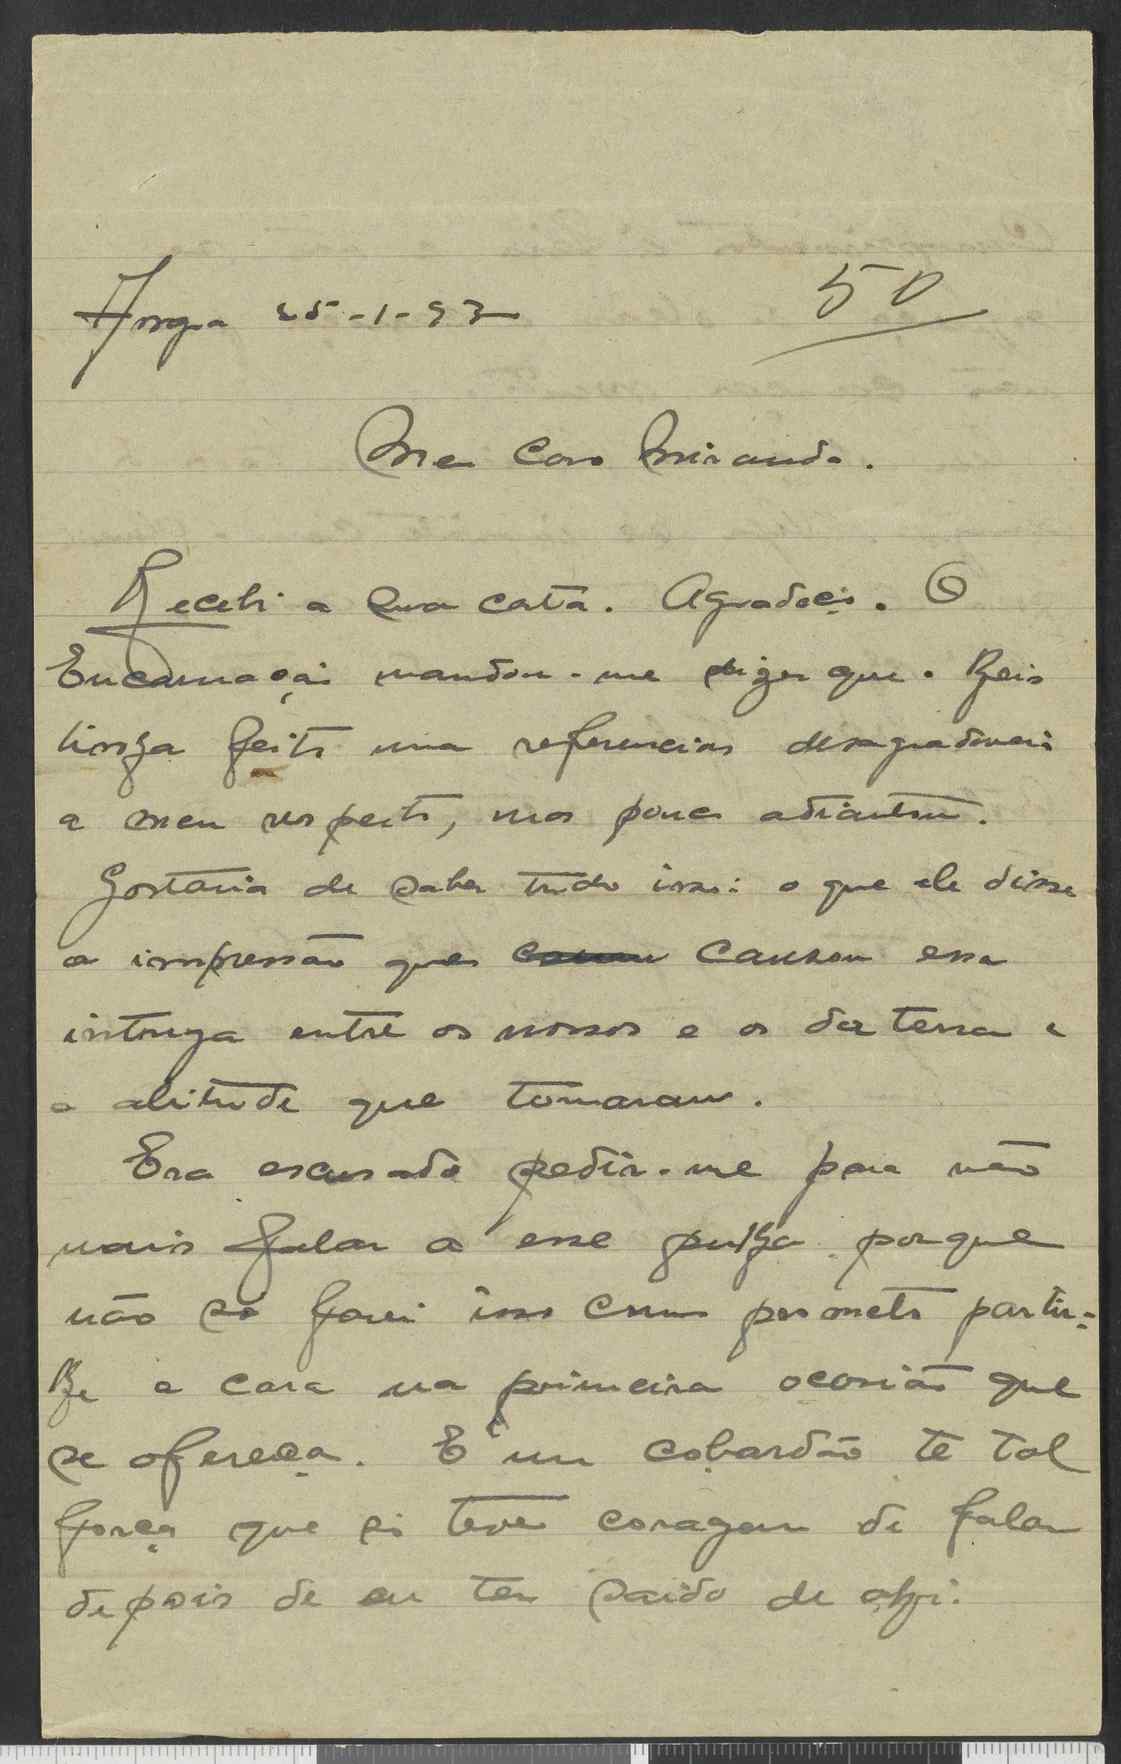 25-1-93
50
Meu Caro Miranda.
Recebi a sua carta. Agradeço. O
Encarnação mandou-me dizer que o Reis
tinha feito uma referencias desagradaveis
a meu respeito, mas pouco adiantou.
Gostaria de saber tudo isso: o que ele disse
a impressão que causou essa
intruga entre os nossos e os da terra e
a atitude que tomaram.
Era escusado pedir-me para não
mais falar a esse pulha porque
não só farei isso como prometo partir-
lhe a cara na primeira ocasião que
se ofereça. É um cobardão te tal
força que só teve coragem de falar
depois de eu ter saido de ahi.